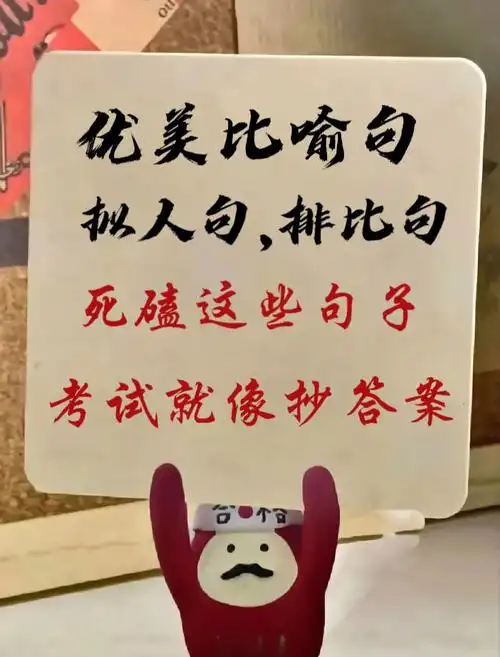 优美比喻句
拟人句,排比句
死磕这些句子
考试就像抄答案
合格